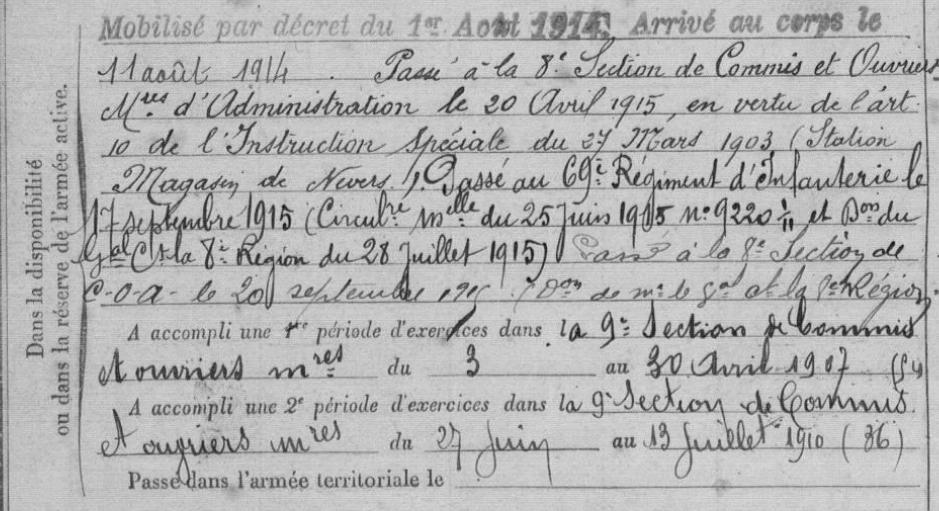 Dans la disponibilité
ou dans la réserve de l'armée active.
Mobilisé par décret du 1er Août 1914. Arrivé au corps le
11 août 1914. Passé à la 8e Section de Commis et Ouvriers
Mres d'Administration le 20 Avril 1915, en vertu de l'art.
10 de l'Instruction Spéciale du 27 Mars 1903 (Station
Magasin de Nevers.) Passé au 69e Régiment d'Infanterie le
17 septembre 1915 (Circulre mlle du 25 Juin 1915 n° 9220 et Don du
Gal Ct la 8e Région du 28 Juillet 1915) Passé à la 8e Section de
C-O-A- le 20 septembre 1915 (Don de mr le Gal Ct la 8e Région.
A accompli une 1re période d'exercices dans la 9e Section de Commis
et ouvriers mres du 3 au 30 Avril 1907
A accompli une 2e période d'exercices dans la 9e Section de Commis
et ouvriers mres du 27 Juin au 13 Juillet 1910 (36)
Passé dans l'armée territoriale le